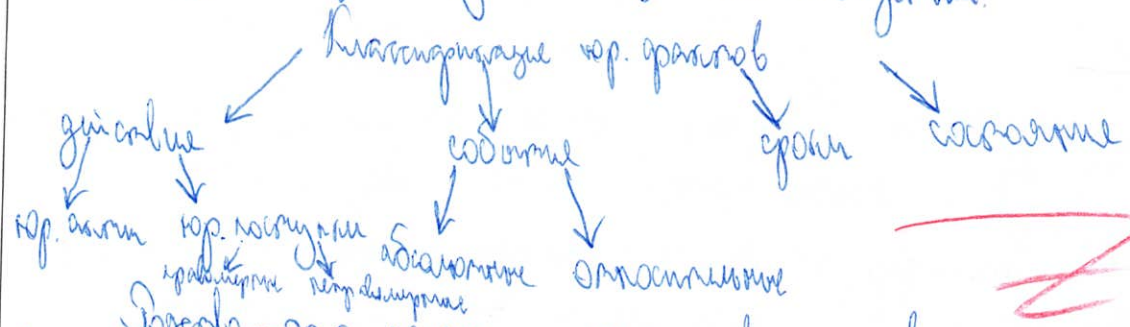 Классификация юр. фактов
действие события сроки состояние
юр. акты юр. поступки абсолютные относительные
правомерные неправомерные